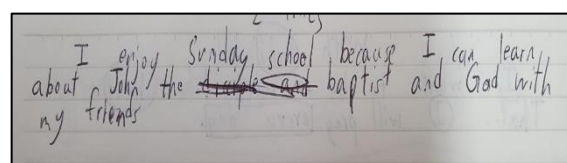 I enjoy Sunday school because I can learn
about John the baptist and God with
my friends